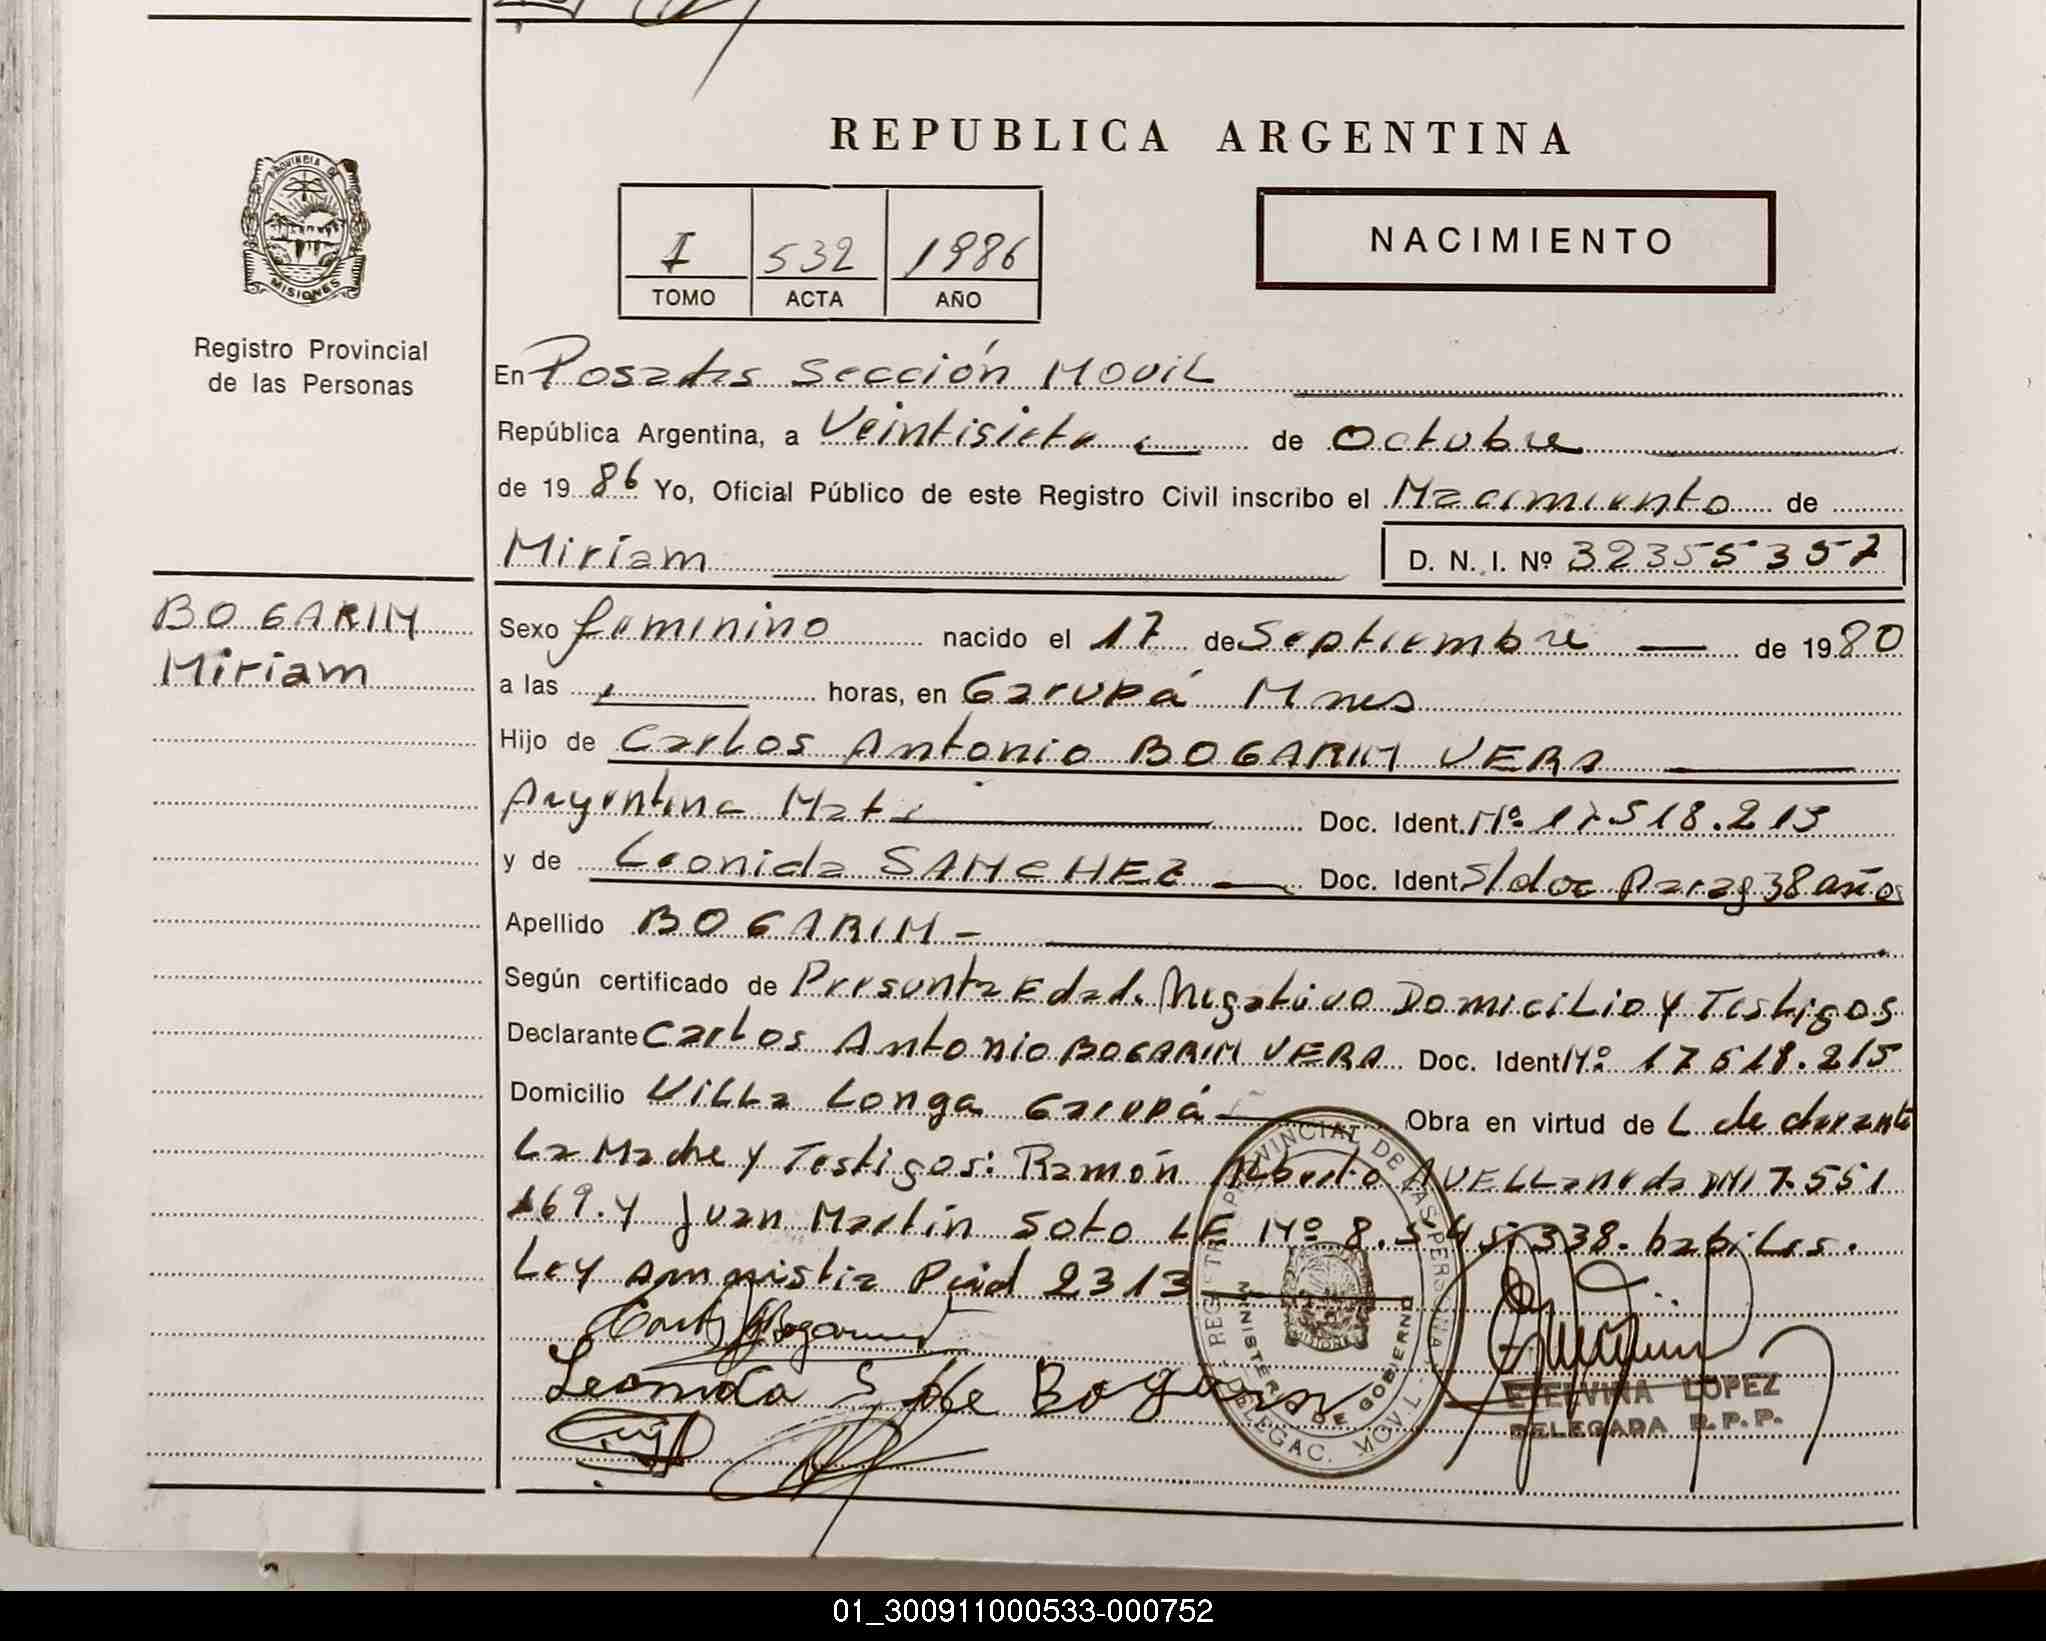 REPUBLICA ARGENTINA
PROVINCIA DE
MISIONES
I 532 1986
TOMO ACTA AÑO
NACIMIENTO
Registro Provincial
de las Personas
En Posadas Sección Movil
República Argentina, a Veintisiete de Octubre
de 1986 Yo, Oficial Público de este Registro Civil inscribo el Nacimiento de
Miriam D. N. I. Nº 32355357
BOGARIN
Miriam
Sexo femenino nacido el 17 de Septiembre — de 1980
a las horas, en Garupá Mnes
Hijo de Carlos Antonio BOGARIN VERA
Argentina Nat. Doc. Ident. Nº 17.518.215
y de Leonida SANCHEZ Doc. Ident S/doc Parag 38 años
Apellido BOGARIN -
Según certificado de Presunta Edad. Negativo Domicilio y Testigos
Declarante Carlos Antonio BOGARIN VERA Doc. Ident Nº 17518.215
Domicilio Villa Longa Garupá Obra en virtud de L declarante
La Madre y Testigos: Ramón Alberto AVELLaneda DNI 7.551
169. y Juan Martín Soto LE Nº 8.545.338. habiles.
Ley amnistia 2313
Leonida S de Bogarin
REGISTRO PROVINCIAL DE LAS PERSONAS
MINISTERIO DE GOBIERNO
DELEGAC. MOVIL
MISIONES
ETELVINA LOPEZ
DELEGADA R.P.P.
01_300911000533-000752